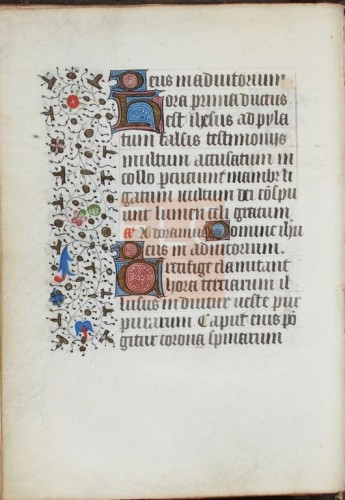 Deus in adiutorium
Hora prima ductus
est ihesus ad pyla
tum falsis testimonijs
multum accusatum in
collo percutiunt manibꝫ li
gatum vultum dei cōspu
unt lumen celi gratum
Adoramus Domine ihu
Deus in aditorium.
Crucifige clamitant
hora terciarum il
lusus induitur veste pur
purarum Caput eius pō
gitur corona spinarum